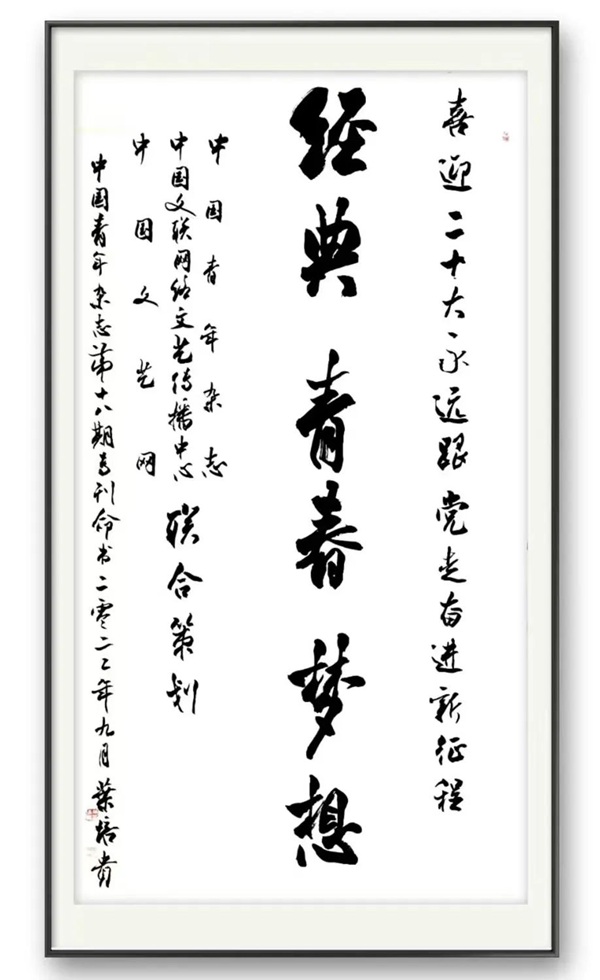 喜迎二十大、永远跟党走奋进新征程
经典青春梦想
中国青年杂志
中国文联网络文艺传播中心
中国文艺网
联合策划
中国青年杂志第十八期专刊命书二零二二年九月叶培贵